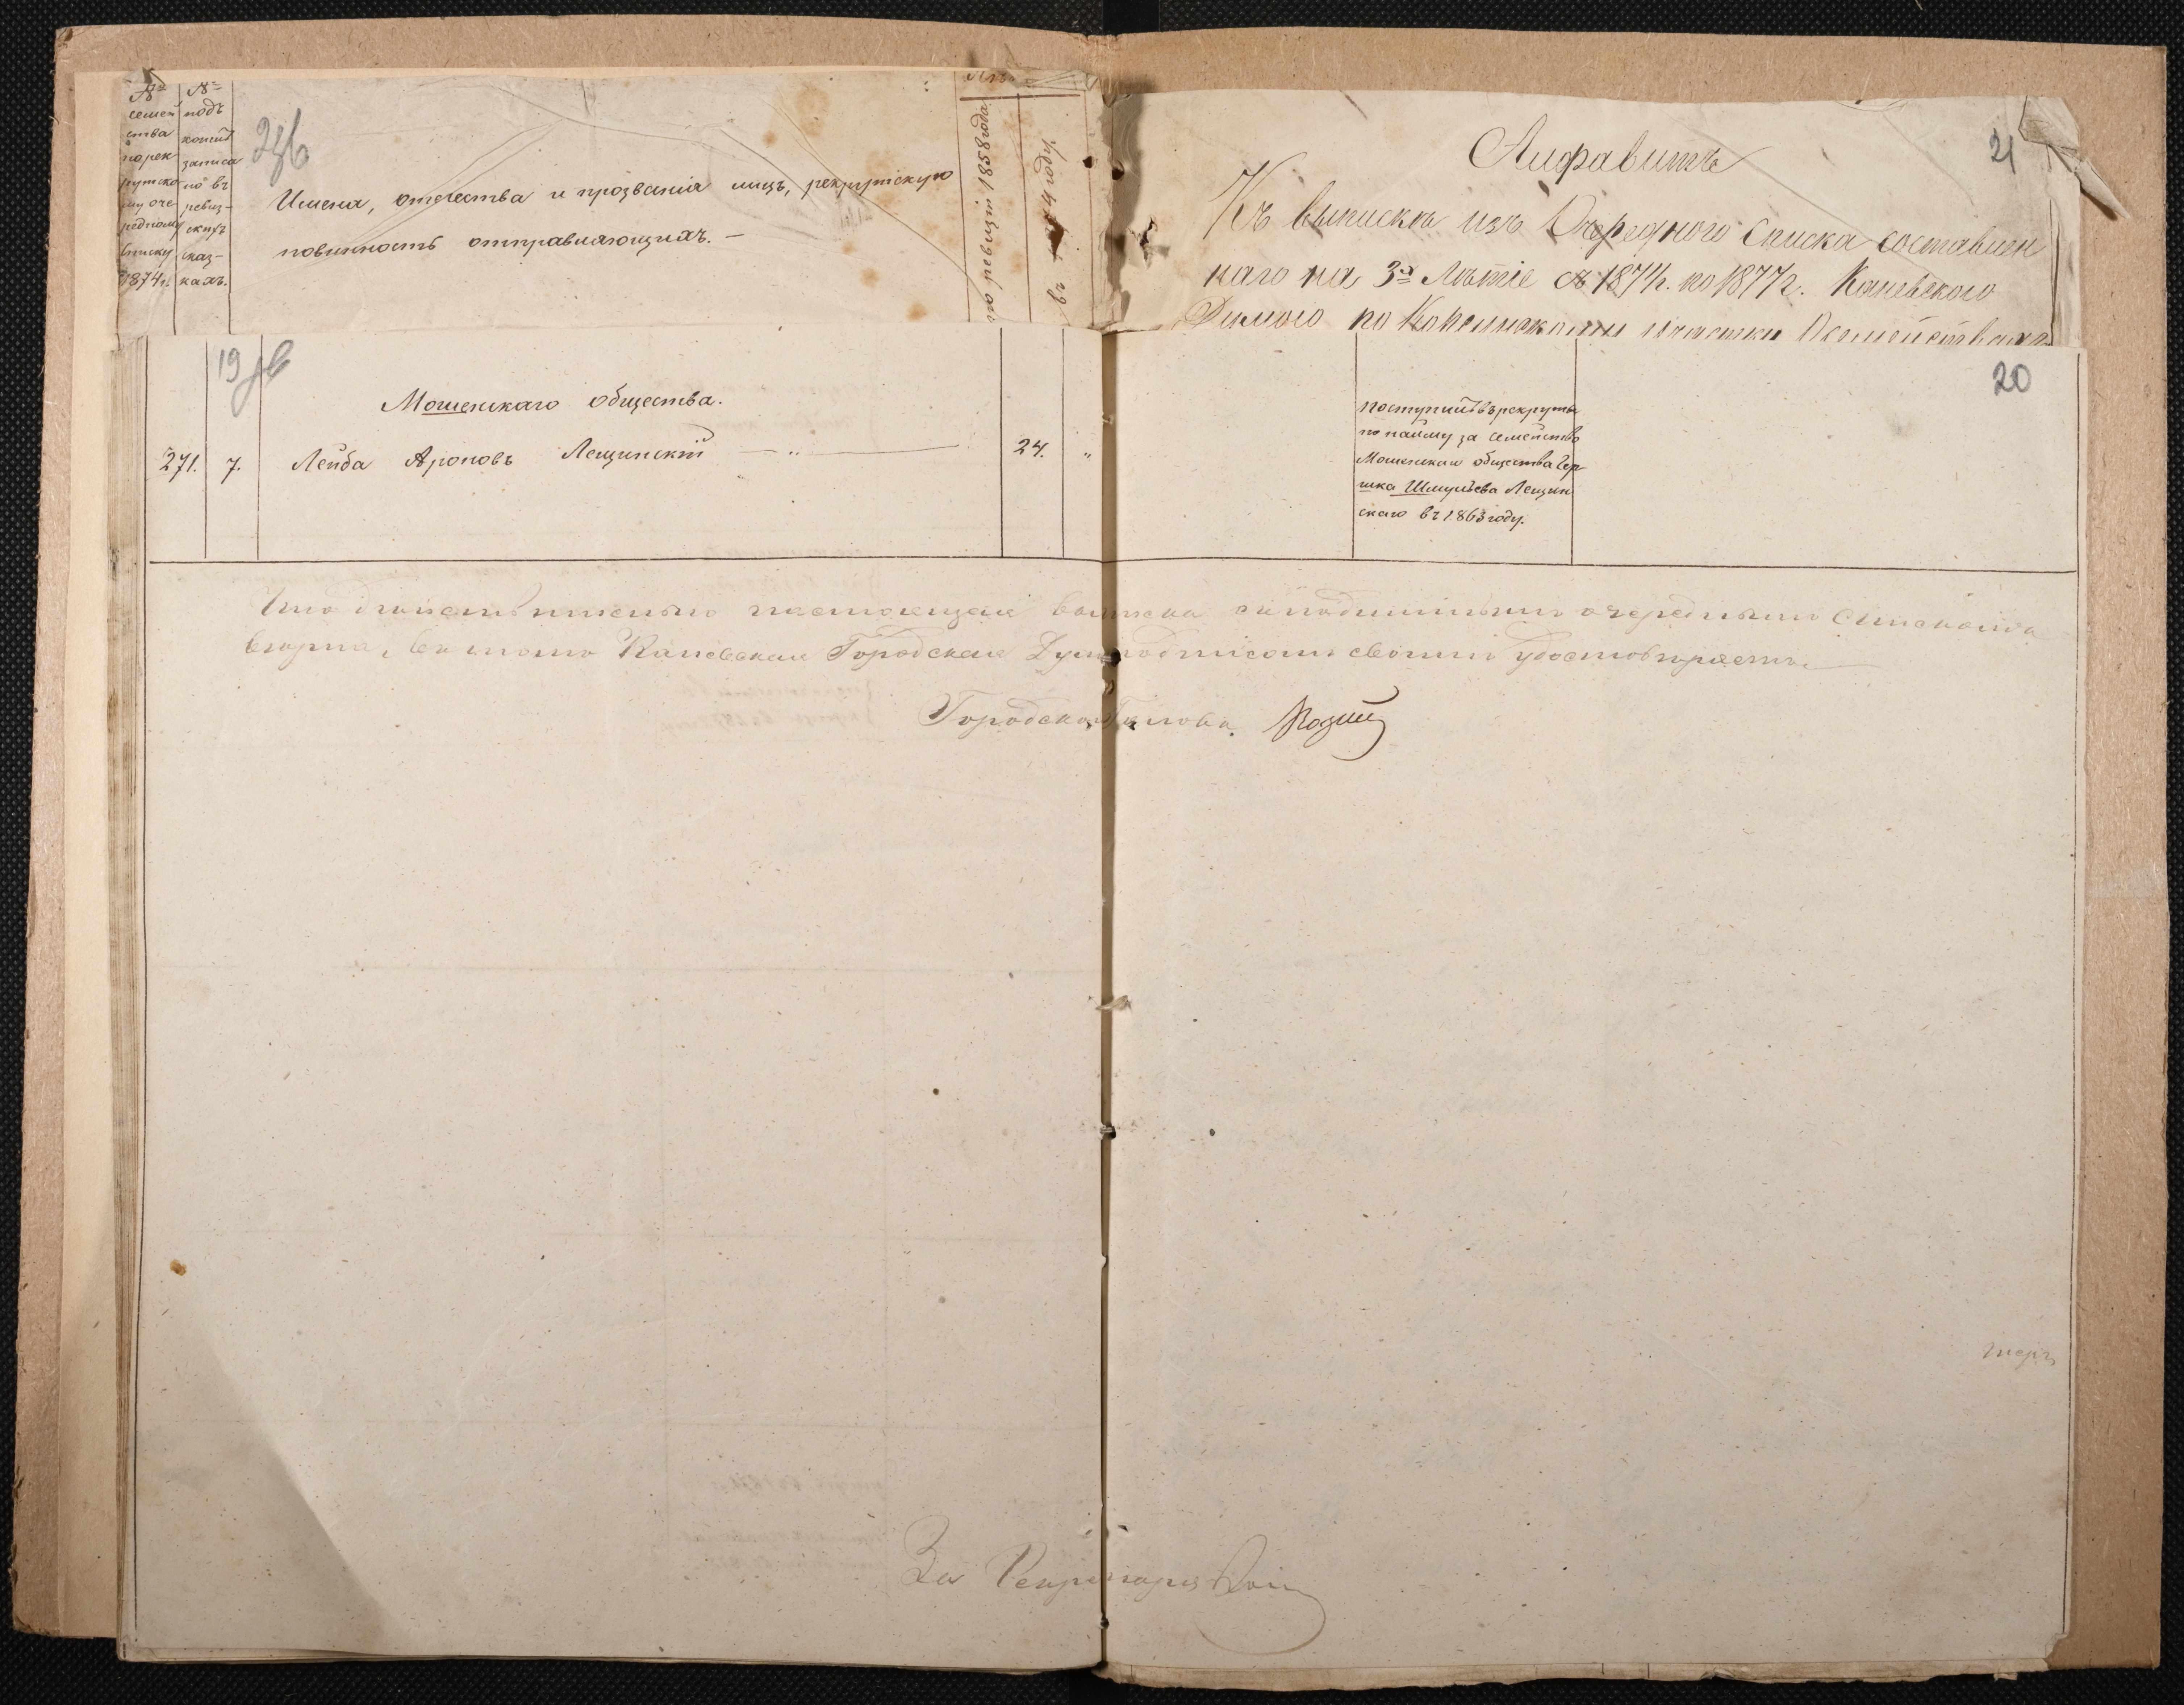 №
семей
ства
по рек
рутско
му оче
редному
списку
1874 г.
№
подъ
коимъ
записа
но въ
ревиз-
скихъ
сказ-
кахъ.
Имена, отечества и прозванія лицъ, рекрутскую
повинность отправляющихъ.—
по ревизіи 1858 года
въ 1874 году
21
Алфавитъ
Къ выпискѣ изъ Очереднаго списка составлен
наго на 3х Лѣтіе съ 1874 г. по 1877 г. Каневского
Думою по
19
20
Мошенскаго общества.
271. 7. Лейба Ароновъ Лещинскій — „ — 24. „
поступилъ въ рекруты
по найму за семейство
Мошенскаго общества Гер-
шка Шмулева Лещин
скаго въ 1863 году.
Что дѣйствительно настоящая выписка съ подлиннымъ очереднымъ спискомъ
вѣрна, въ томъ Каневская Городская Дума подписомъ своимъ удостовѣряетъ.
Городской Голова
За Секретаря